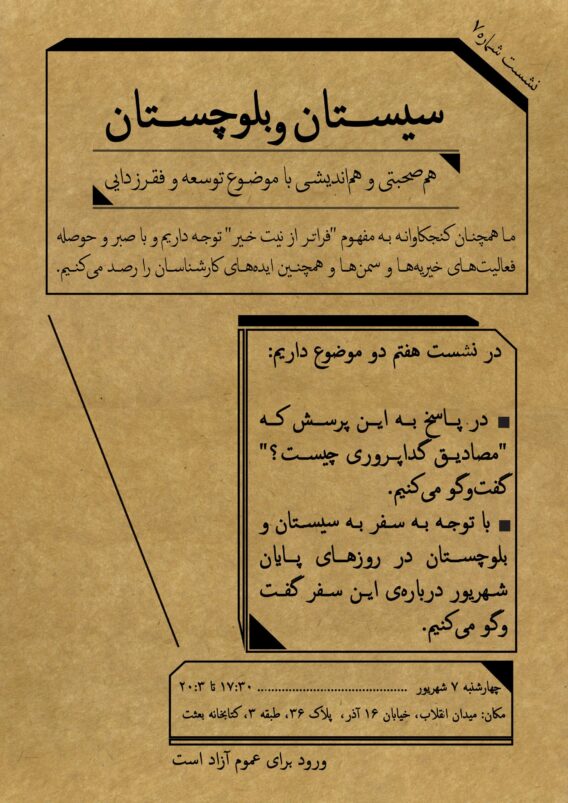 نشست شماره ۷
سیستان و بلوچستان
هم‌صحبتی و هم‌اندیشی با موضوع توسعه و فقرزدایی
ما همچنان کنجکاوانه به مفهوم "فراتر از نیت خیر" توجه داریم و با صبر و حوصله
فعالیت‌های خیریه‌ها و سمن‌ها و همچنین ایده‌های کارشناسان را رصد می‌کنیم.
در نشست هفتم دو موضوع داریم:
■ در پاسخ به این پرسش که
"مصادیق گداپروری چیست؟"
گفت‌وگو می‌کنیم.
■ با توجه به سفر به سیستان و
بلوچستان در روزهای پایان
شهریور درباره‌ی این سفر گفت
وگو می‌کنیم.
چهارشنبه ۷ شهریور ........................................ ۱۷:۳۰ تا ۲۰:۳
مکان: میدان انقلاب، خیابان ۱۶ آذر، پلاک ۳۶، طبقه ۳، کتابخانه بعثت
ورود برای عموم آزاد است